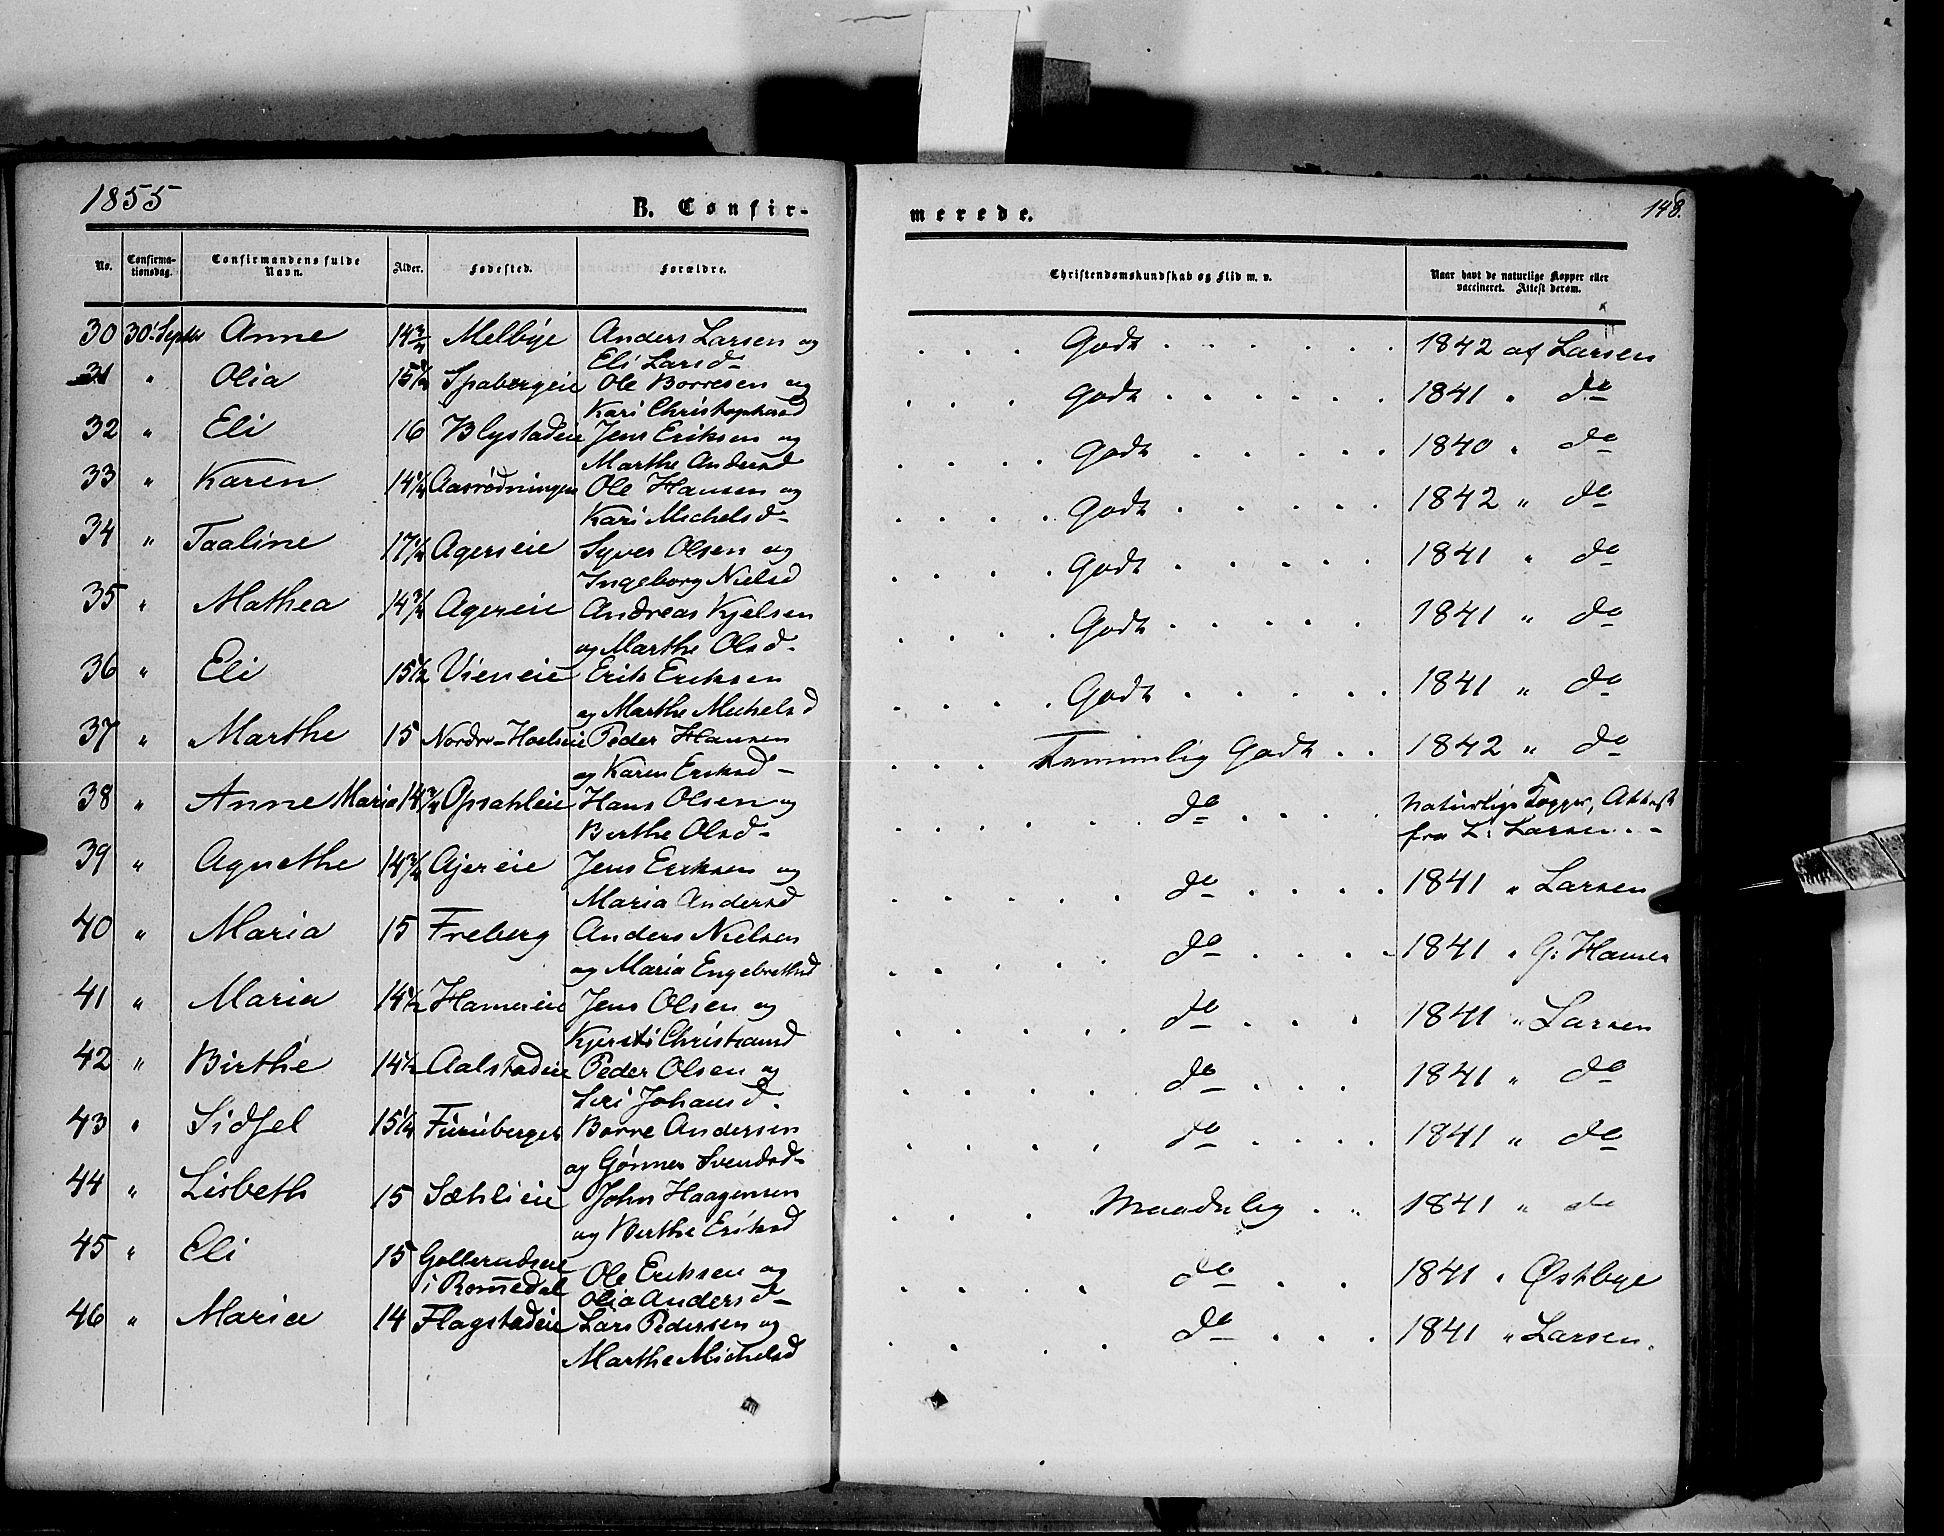 1855
B. Confirmerede.
148.
No. Confirmationsdag. Confirmandens fulde Navn. Alder. Fødested. Forældre. Christendomskundskab og Flid m. v. Naar havt de naturlige Kopper eller vaccineret. Attest derom.
30 30' Septbr Anne 14 3/4 Melbye Anders Larsen og Godt 1842 af Larsen
Eli Larsd
31 " Olia 15 1/2 Spabergeie Ole Borresen og Godt 1841 " do
Kari Christophersd
32 " Eli 16 Blystadeie Jens Eriksen og Godt 1840 " do
Marthe Andersd
33 " Karen 14 1/4 Aasrødningen Ole Hansen og Godt 1842 " do
Kari Michelsd
34 " Taaline 17 1/4 Agerseie Syver Olsen og Godt 1841 " do
Ingeborg Nielsd
35 " Mathea 14 3/4 Agereie Andreas Kjelsen Godt 1841 " do
og Marthe Olsd
36 " Eli 15 1/2 Vieneie Erik Eriksen Godt 1841 " do
og Marthe Michelsd
37 " Marthe 15 Nordre-Hoelseie Peder Hansen Temmelig Godt 1842 " do
og Karen Eriksd
38 " Anne Maria 14 3/4 Opsahleie Hans Olsen og do Naturlige Kopper, Attest
Birthe Olsd fra L: Larsen
39 " Agnethe 14 3/4 Ajereie Jens Eriksen og do 1841 " Larsen
Maria Andersd
40 " Maria 15 Freberg Anders Nielsen do 1841 " G: Hansen
og Maria Engebrethsd
41 " Maria 14 1/2 Hamereie Jens Olsen og do 1841 " Larsen
Kjersti Christiansd
42 " Birthe 14 1/2 Aalstadeie Peder Olsen og do 1841 " do
Siri Johansd
43 " Sidsel 15 1/4 Furuberget Borre Andersen do 1841 " do
og Gønner Svendsd
44 " Lisbeth 15 Sæhlieie John Haagensen Maadelig 1841 " do
og Birthe Eriksd
45 " Eli 15 Gollerudseie Ole Eriksen og do 1841 " Østbye
i Romedal Olia Andersd
46 " Maria 14 Flagstadeie Lars Pedersen og do 1841 " Larsen.
Marthe Michelsd